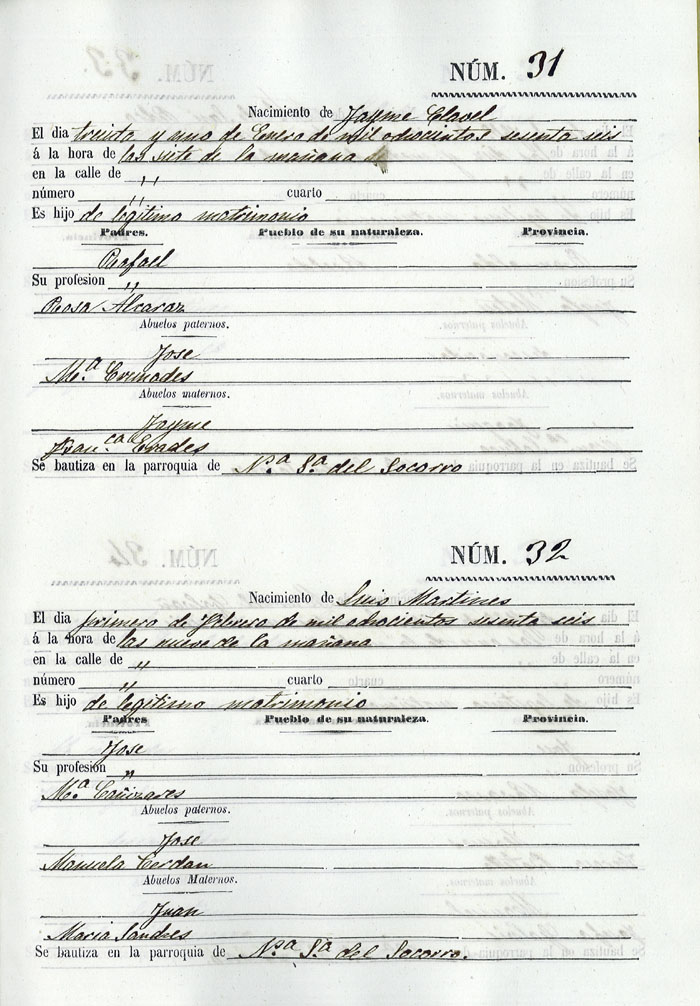 NÚM. 31
Nacimiento de Jayme Clavel
El dia treinta y uno de Enero de mil ochocientos sesenta seis
á la hora de las siete de la mañana
en la calle de "
número " cuarto
Es hijo de legitimo matrimonio
Padres. Pueblo de su naturaleza. Provincia.
Rafael
Su profesion "
Rosa Alcaraz
Abuelos paternos.
Jose
Mª Cremades
Abuelos maternos.
Jayme
Franca
Se bautiza en la parroquia de Nª Sª del Socorro
NÚM. 32
Nacimiento de Luis Martines
El dia primero de Febrero de mil ochocientos sesenta seis
á la hora de las nueve de la mañana
en la calle de "
número " cuarto
Es hijo de legitimo matrimonio
Padres Pueblo de su naturaleza. Provincia.
Jose
Su profesión "
Mª Cañizares
Abuelos paternos.
Jose
Manuela Cerdan
Abuelos Maternos.
Juan
Maria
Se bautiza en la parroquia de Nª Sª del Socorro.